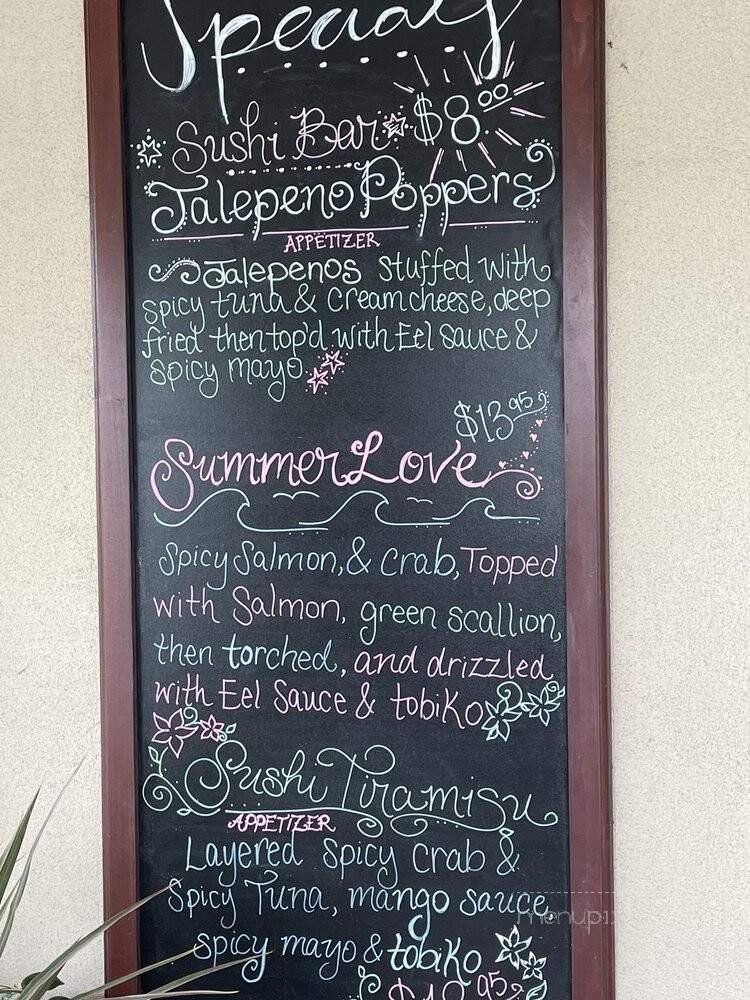 Specials
Sushi Bar $8.00
Jalepeno Poppers
APPETIZER
Jalepenos stuffed with
spicy tuna & Cream cheese, deep
fried then top'd with Eel sauce &
spicy mayo
$13.95
Summer Love
Spicy Salmon, & Crab, Topped
with Salmon, green scallion,
then torched, and drizzled
with Eel Sauce & tobiko
Sushi Tiramisu
APPETIZER
Layered Spicy Crab &
Spicy Tuna, mango sauce
spicy mayo & tobiko